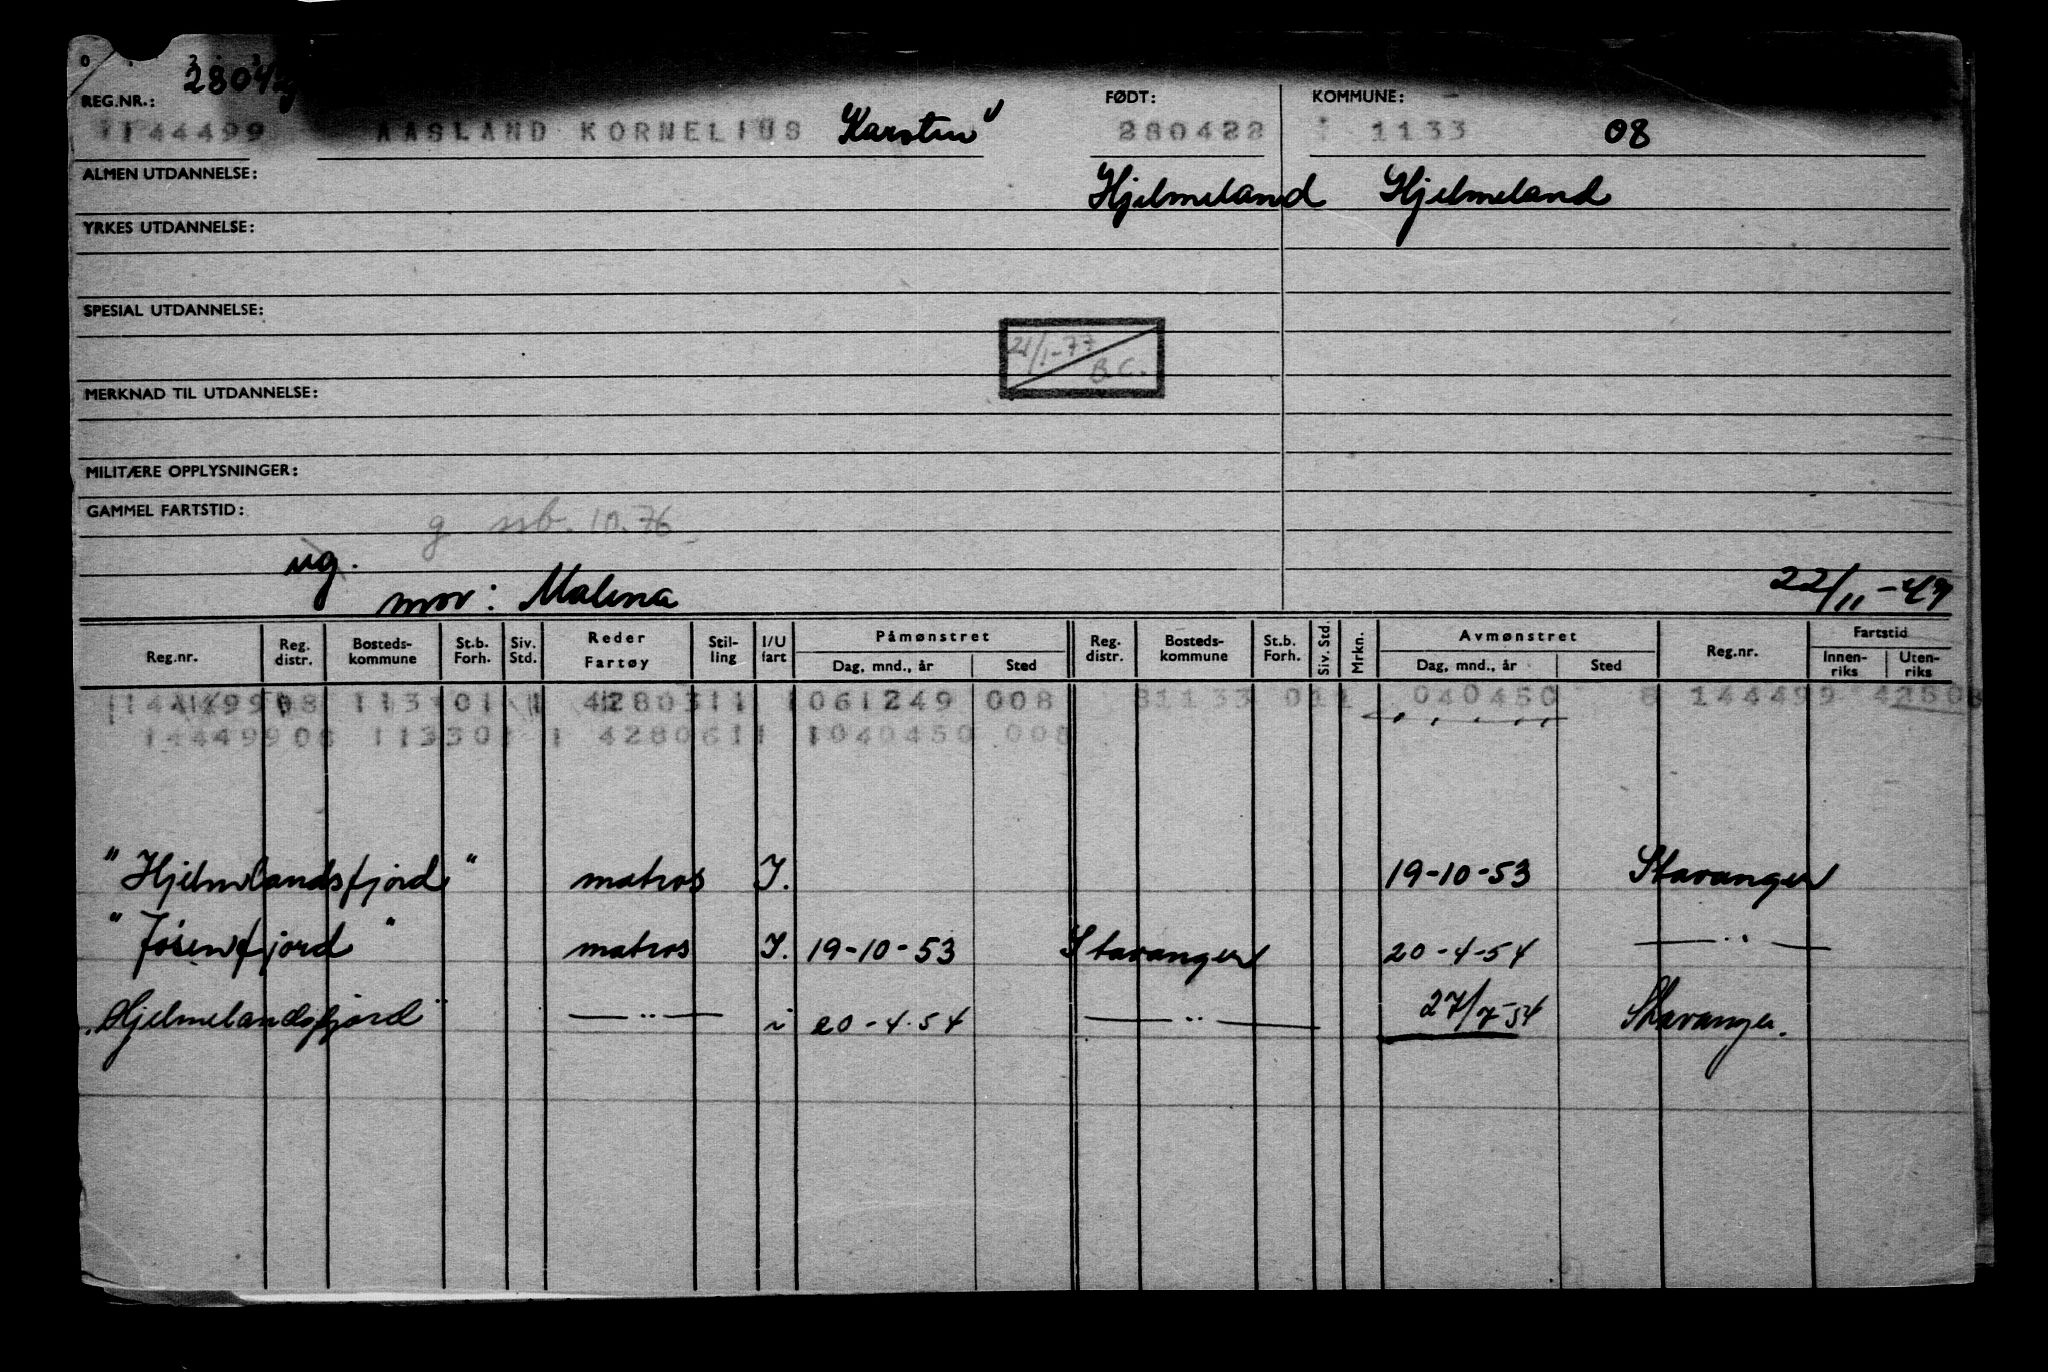 REG.NR.:
FØDT:
KOMMUNE:
144499 AASLAND KORNELIUS Karsten" 280422 1133 08
ALMEN UTDANNELSE:
Hjelmeland Hjelmeland
YRKES UTDANNELSE:
SPESIAL UTDANNELSE:
21/1-77
B.C.
MERKNAD TIL UTDANNELSE:
MILITÆRE OPPLYSNINGER:
GAMMEL FARTSTID:
10.76
ug.
mor: Malena 22/11-49
Reg.nr. Reg. distr. Bosteds-kommune St.b. Forh. Siv. Std. Reder Fartøy Stil-ling I/U fart Påmønstret Dag, mnd., år Sted Reg. distr. Bosteds-kommune St.b. Forh. Siv. Std. Mrkn. Avmønstret Dag, mnd., år Sted Reg.nr. Fartstid Innen-riks Uten-riks
061249 008 31133 011 040450 8 144499
14449908 11330 1 4280611 1040450 008
"Hjelmlandsfjord" matros I. 19-10-53 Stavanger
"Jøsenfjord" matros I. 19-10-53 Stavanger 20-4-54 — " —
"Hjelmelandsfjord" — " — i 20-4.54 — " — 27/7-54 Stavanger.